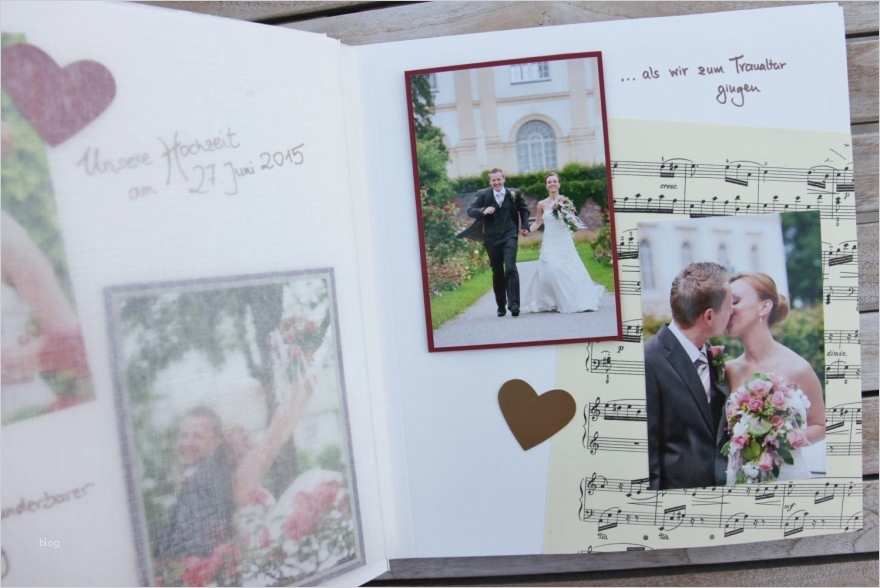 Unsere Hochzeit
am 27 Juni 2015
underbarer
blog
... als wir zum Traualtar
gingen
cresc
p
dimin.
mf